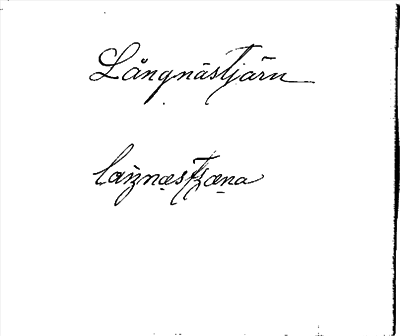 Långnästjärn
laŋnæstjæṇa